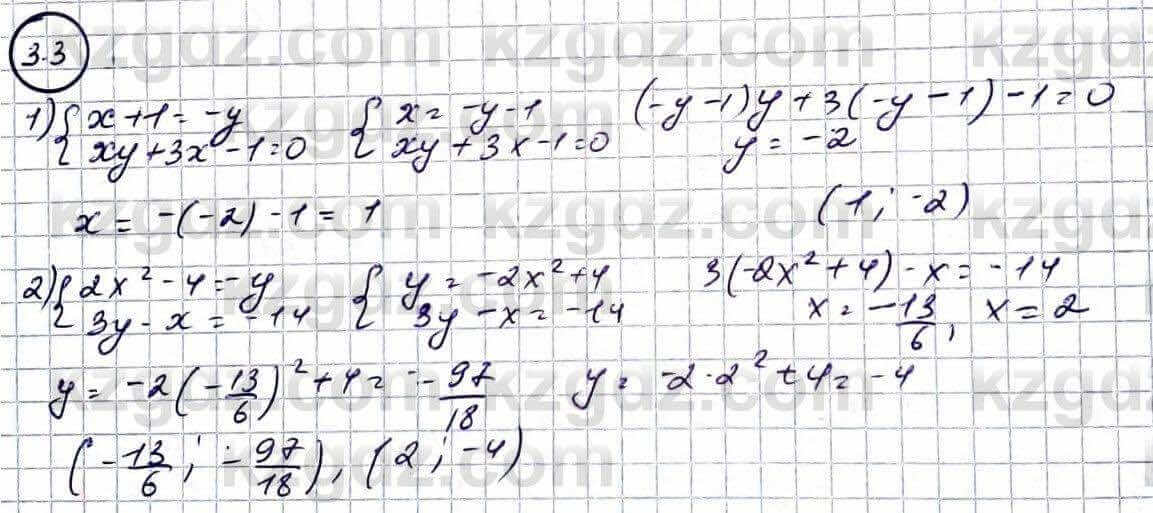 3.3
1) { x + 1 = -y   { x = -y - 1   (-y - 1)y + 3(-y - 1) - 1 = 0
xy + 3x - 1 = 0   xy + 3x - 1 = 0   y = -2
x = -(-2) - 1 = 1   (1; -2)
2) { 2x² - 4 = -y   { y = -2x² + 4   3(-2x² + 4) - x = -14
3y - x = -14   3y - x = -14   x = -13/6, x = 2
y = -2(-13/6)² + 4 = -97/18   y = -2·2² + 4 = -4
(-13/6; -97/18), (2; -4)
kzgdz.com kzgdz.com kzgdz
kzgdz.com kzgdz.com
kzgdz.com kzgdz.com kzgdz
kzgdz.com kzgdz.com
kzgdz.com kzgdz.com kzgdz
kzgdz.com